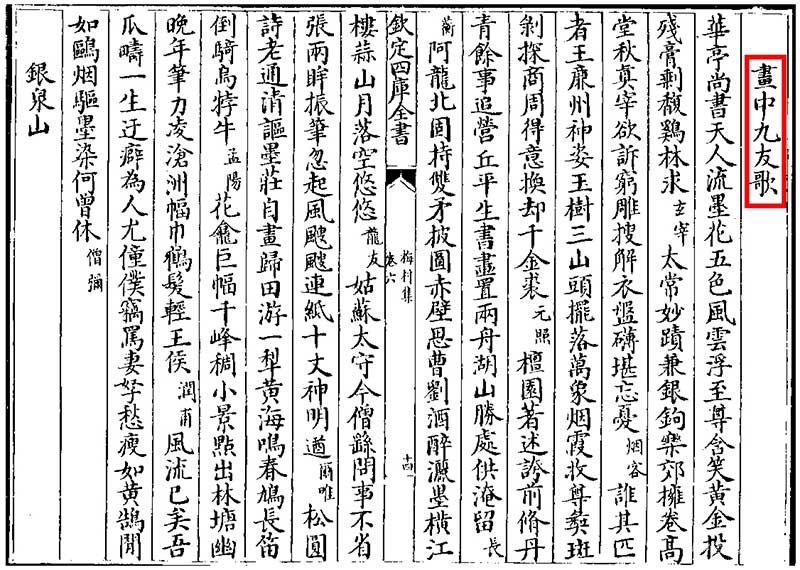 畫中九友歌
華亭尚書天人流墨花五色風雲浮至尊含笑黃金投
殘膏剩馥鷄林求玄宰太常妙蹟兼銀鉤樂郊擁卷高
堂秋真宰欲訴窮雕搜解衣盤礴堪忘憂烟客誰其匹
者王廉州神姿玉樹三山頭擺落萬象烟霞收尊彝斑
剝探商周得意換却千金裘元照檀園著述誇前脩丹
青餘事追營丘平生書畫置兩舟湖山勝處供淹留長
蘅阿龍北固持雙矛披圖赤壁思曹劉酒醉灑墨橫江
欽定四庫全書
梅村集
卷六
十四
樓蒜山月落空悠悠龍友姑蘇太守今僧繇問事不省
張兩眸振筆忽起風颼颼連紙十丈神明遒爾唯松圓
詩老通清謳墨莊自畫歸田游一犁黃海鳴春鳩長笛
倒騎烏牸牛孟陽花龕巨幅千峰稠小景點出林塘幽
晚年筆力凌滄洲幅巾鶴髮輕王侯潤甫風流已矣吾
瓜疇一生迂癖為人尤僮僕竊罵妻孥愁瘦如黃鵠閒
如鷗烟驅墨染何曾休僧彌
銀泉山